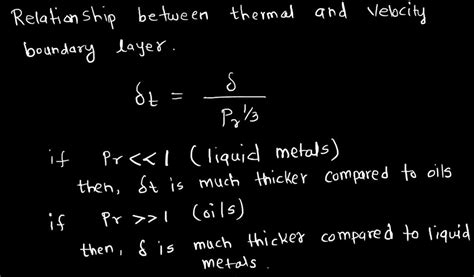 Relationship between thermal and velocity
boundary layer.
δt = δ / Pr^1/3
if Pr << 1 (liquid metals)
then, δt is much thicker compared to oils
if Pr >> 1 (oils)
then, δ is much thicker compared to liquid
metals.